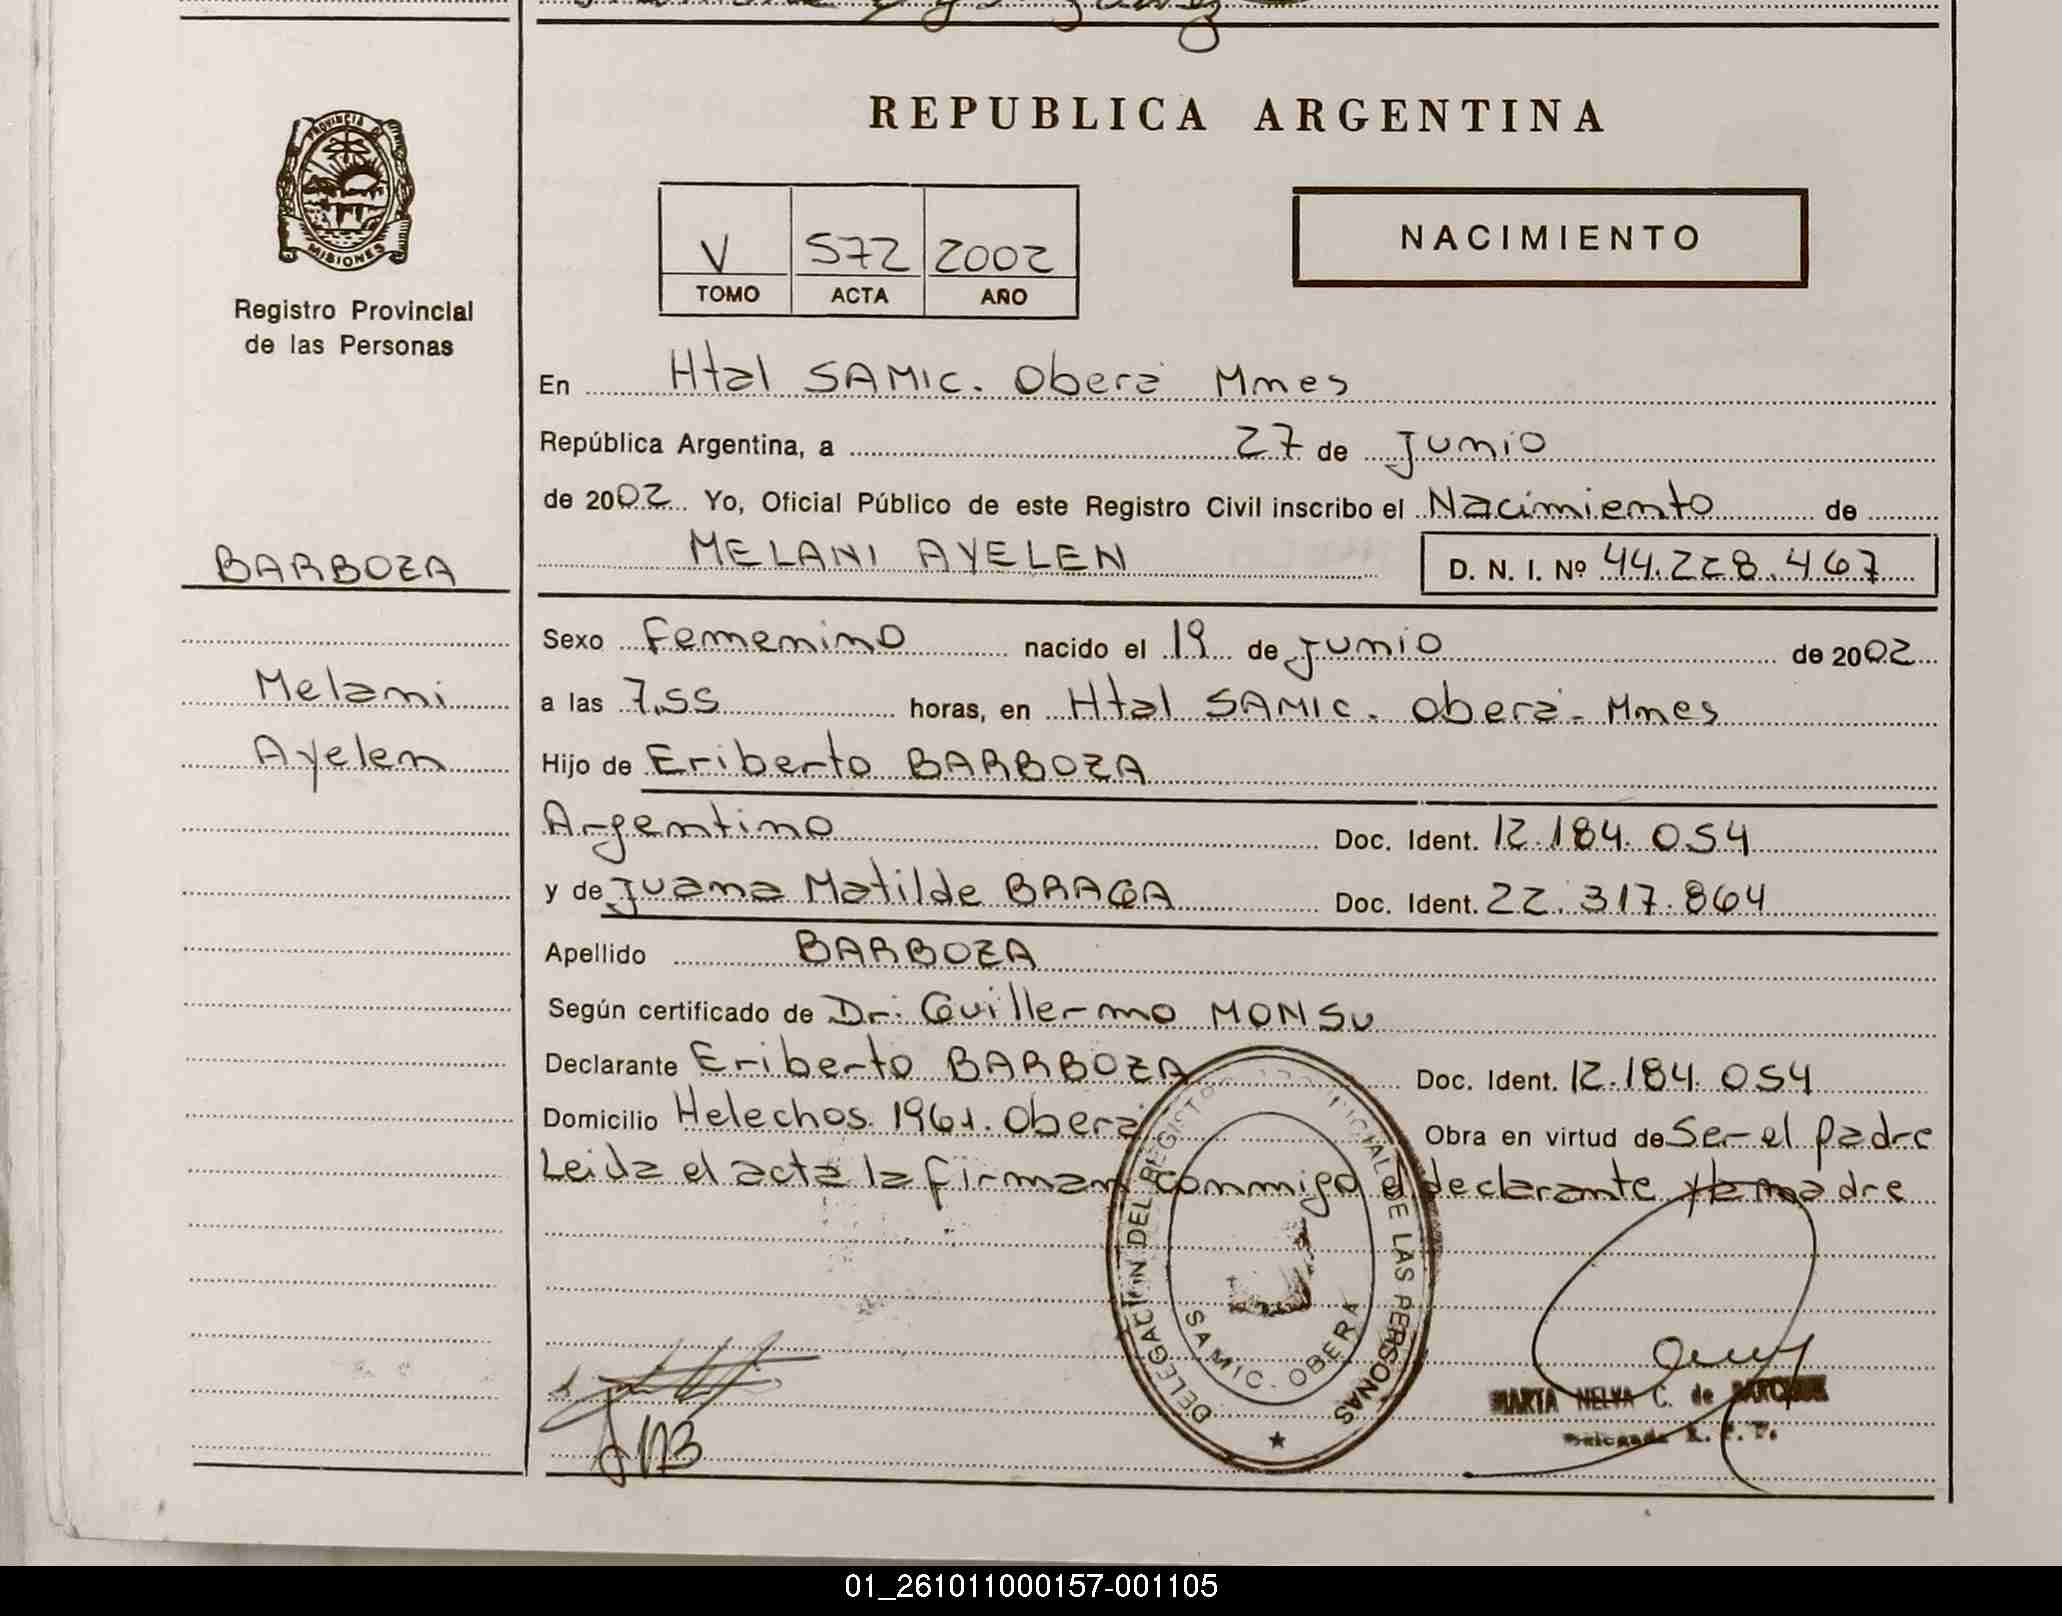 REPUBLICA ARGENTINA
PROVINCIA DE
MISIONES
Registro Provincial
de las Personas
V 572 2002
TOMO ACTA AÑO
NACIMIENTO
En Htal SAMIC. Oberá Mnes
República Argentina, a 27 de Junio
de 2002 Yo, Oficial Público de este Registro Civil inscribo el Nacimiento de
BARBOZA
MELANI AYELEN D. N. I. Nº 44.228.467
Sexo Femenino nacido el 19 de Junio de 2002
Melani
a las 7,55 horas, en Htal SAMIC. Oberá. Mnes
Ayelen
Hijo de Eriberto BARBOZA
Argentino Doc. Ident. 12.184.054
y de Juana Matilde BRAGA Doc. Ident. 22.317.864
Apellido BARBOZA
Según certificado de Dr. Guillermo MONSU
Declarante Eriberto BARBOZA Doc. Ident. 12.184.054
Domicilio Helechos 1961. Oberá Obra en virtud de Ser el padre
Leida el acta la firman conmigo el declarante y la madre
DELEGACION DEL REGISTRO PROVINCIAL DE LAS PERSONAS
SAMIC. OBERA
MARTA NELVA C. de
Delegada R. P. P.
01_261011000157-001105